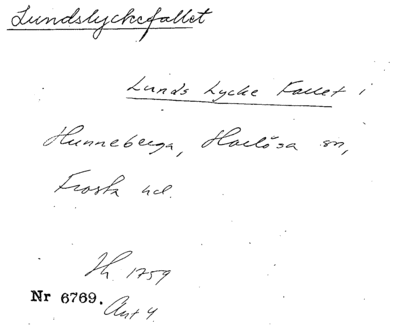 Lundslyckefallet
Lunds Lycke Fallet i
Hunneberga, Harlösa sn,
Frosta hd.
Jh. 1759
Nr 6769. Akt 4